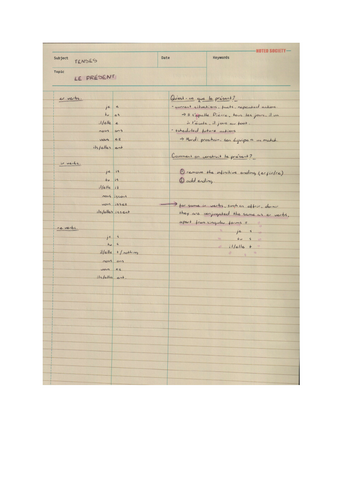 ENTER KNOXITY
Subject TENSES Date Keywords
Topic LE PRÉSENT
er verbs
je e
tu es
il/elle e
nous ons
vous ez
ils/elles ent
ir verbs
je is
tu is
il/elle it
nous issons
vous issez
ils/elles issent
re verbs
je s
tu s
il/elle t / nothing
nous ons
vous ez
ils/elles ent
Qu'est-ce que le présent?
- current situations, facts, repeated actions
→ Il s'appelle Pierre, tous les jours, il va
à l'école, il joue au foot.
- scheduled future actions
→ Mardi prochain, son équipe a un match.
Comment on construit le présent?
① remove the infinitive ending (er/ir/re)
② add ending.
for some ir verbs,
they are conjugated the same as er verbs,
apart from singular forms
je s
tu s
il/elle t